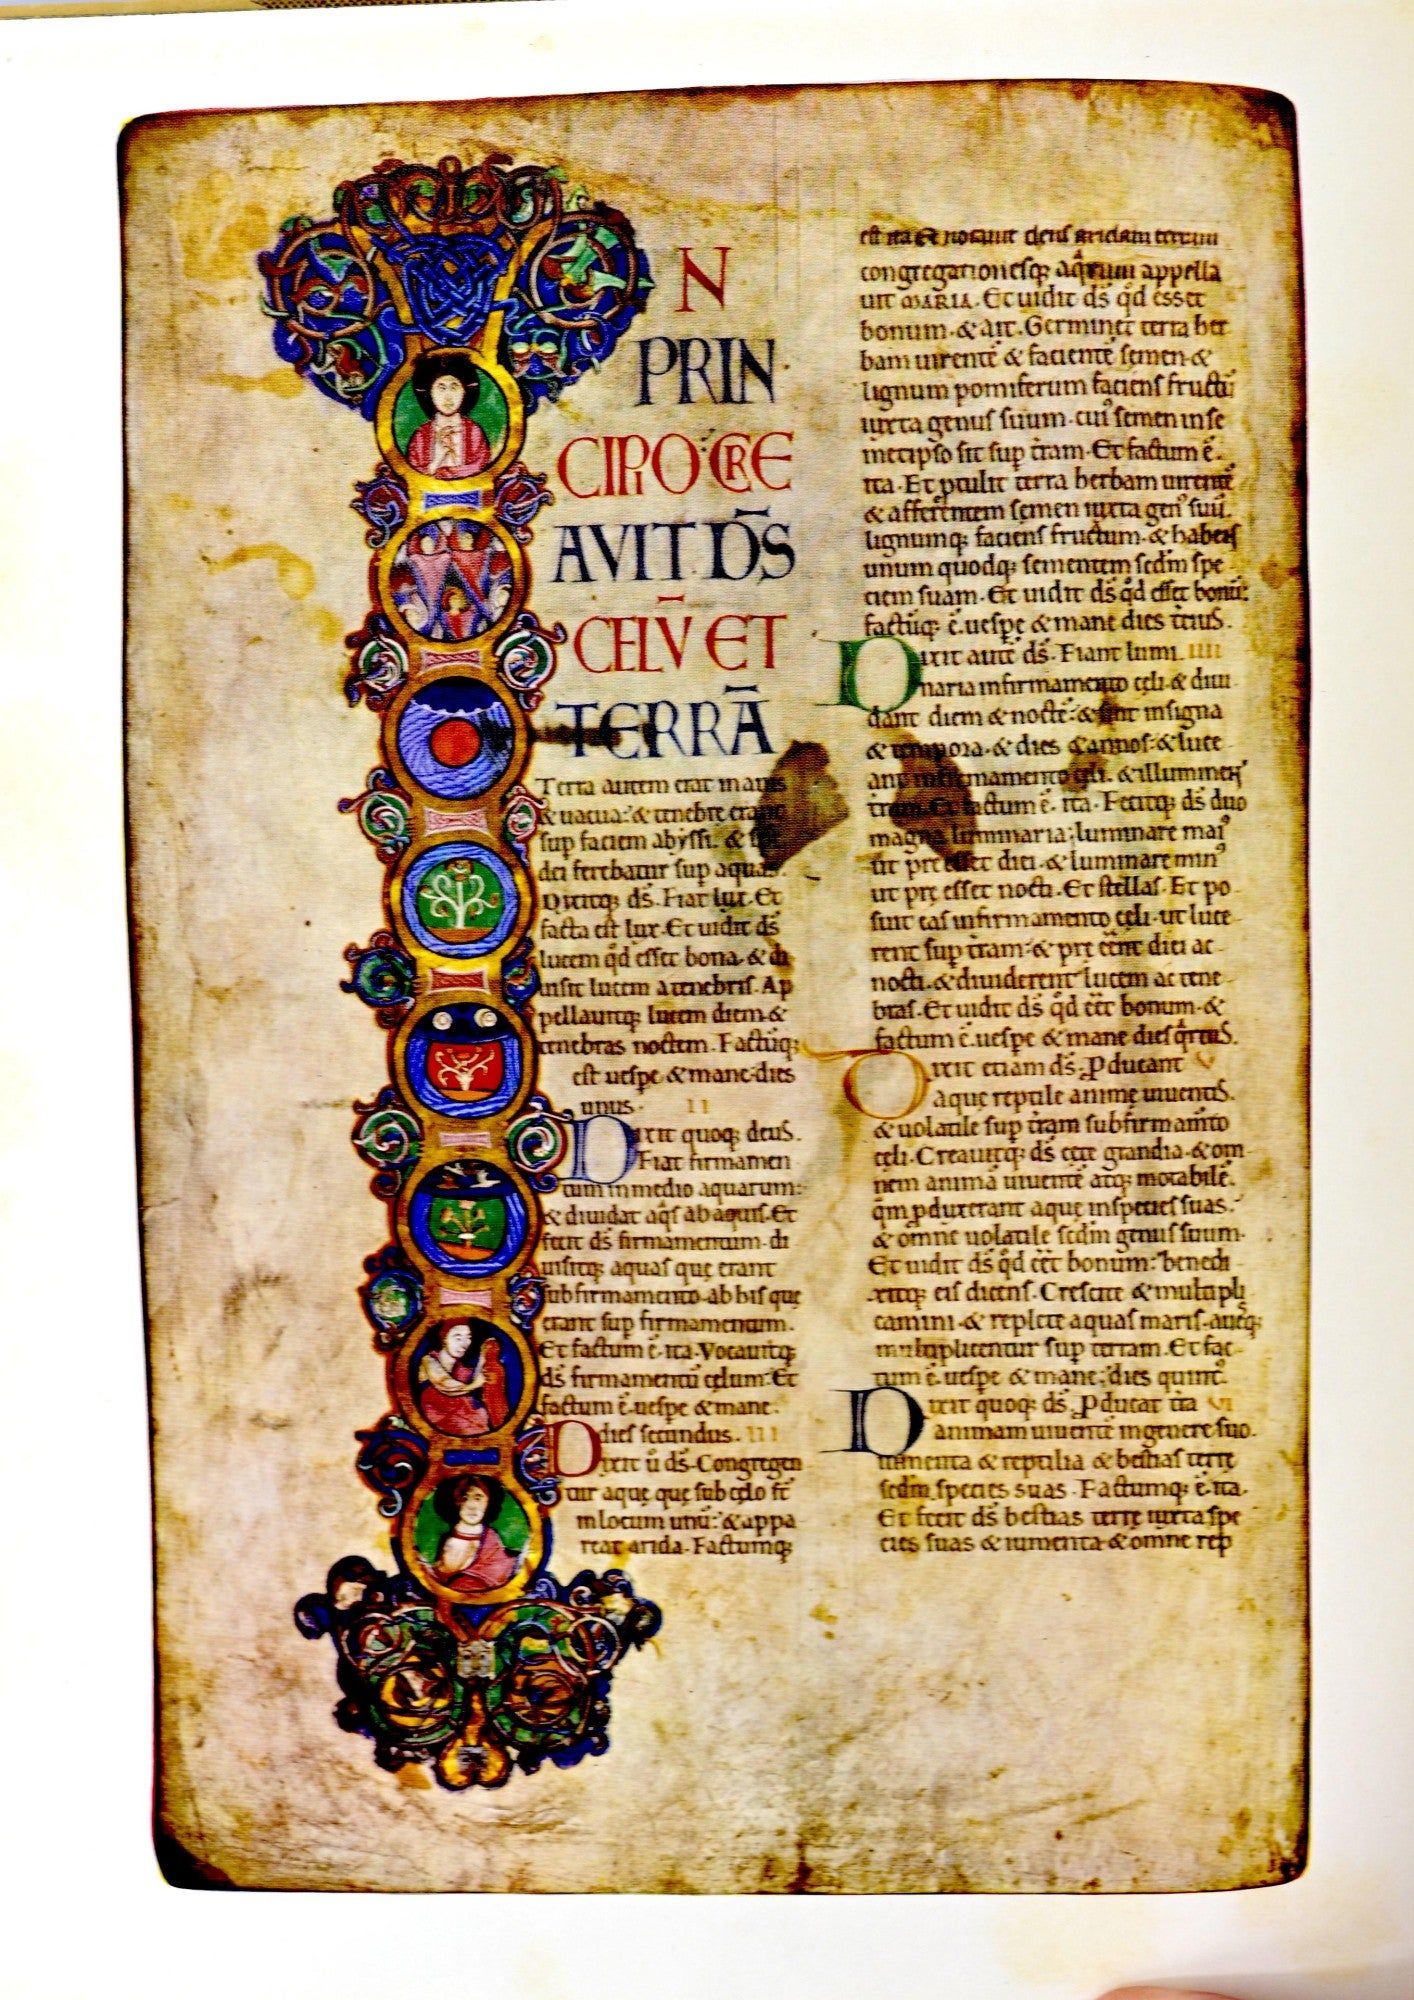 N
PRIN
CIPIO CRE
AVIT DS̄
CELV̄ ET
TERRĀ
Terra autem erat inanis
& uacua: & tenebre erant
sup faciem abyssi. & sp̄s
dei ferebatur sup aquas.
Dixitq; ds̄. Fiat lux. Et
facta est lux. Et uidit ds̄
lucem qd̄ esset bona. & di
uisit lucem a tenebris. Ap
pellauitq; lucem diem &
tenebras noctem. Factūq;
est uespe & mane dies
unus. II
Dixit quoq; deus.
Fiat firmamen
tum in medio aquarum:
& diuidat aq̄s ab aquis. Et
fecit ds̄ firmamentum. di
uisitq; aquas quę erant
sub firmamento ab his que
erant sup firmamentum.
Et factum ē. ita. Vocauitq;
ds̄ firmamentū cęlum: Et
factum ē. uespe & mane.
dies secundus. III
Dixit ū ds̄. Congregen
tur aque quę sub cęlo st̄
in locum unū: & appa
reat arida. Factumq;
est ita Et uocauit deus aridam terram
congregationesq; aq̄rum appella
uit MARIA. Et uidit ds̄ qd̄ esset
bonum. & ait. Germinet terra her
bam uirentē & facientē semen. &
lignum pomiferum faciens fructū
iuxta genus suum. cuiꝰ semen in se
metipso sit sup t̄ram. Et factum ē.
ita. Et ꝓtulit terra herbam uirentē
& afferentem semen iuxta genꝰ suū.
lignumq; faciens fructum. & habens
unum quodq; sementem scd̄m spe
ciem suam. Et uidit ds̄ qd̄ esset bonū:
factūq; ē. uespe & mane dies t̄tius.
Dixit autē ds̄. Fiant lumi IIII
naria in firmamento cęli. & diui
dant diem & noctē: & sint in signa
& tempora. & dies & annos: & luce
ant in firmamento cęli. & illuminent
t̄ram. Et factum ē. ita. Fecitq; ds̄ duo
magna luminaria; luminare maiꝰ
ut pre esset diei. & luminare minꝰ
ut prę esset nocti. Et stellas. Et po
suit eas in firmamento cęli. ut luce
rent sup t̄ram: & prę eēnt diei ac
nocti. & diuiderent lucem ac tene
bras. Et uidit ds̄ qd̄ eēt bonum. &
factum ē. uespe & mane dies q̄rtus.
Dixit etiam ds̄; Ꝓducant V
aquę reptile animę uiuentis.
& uolatile sup t̄ram sub firmam̄to
cęli. Creauitq; ds̄ cete grandia. & om
nem animā uiuentē atq; motabilē.
q̄m ꝓduxerant aquę in species suas.
& om̄e uolatile scd̄m genus suum.
Et uidit ds̄ qd̄ eēt bonum: benedi
xitq; eis dicens. Crescite & multipli
camini. & replete aquas maris. aueq;
multiplicentur sup terram. Et fac
tum ē. uespe & mane; dies quintꝰ.
Dixit quoq; ds̄. Ꝓducat t̄ra VI
animam uiuentē in genere suo.
iumenta & reptilia & bestias terrę
scd̄m species suas. Factumq; ē. ita.
Et fecit ds̄ bestias terrę iuxta spe
cies suas & iumenta & omne rep